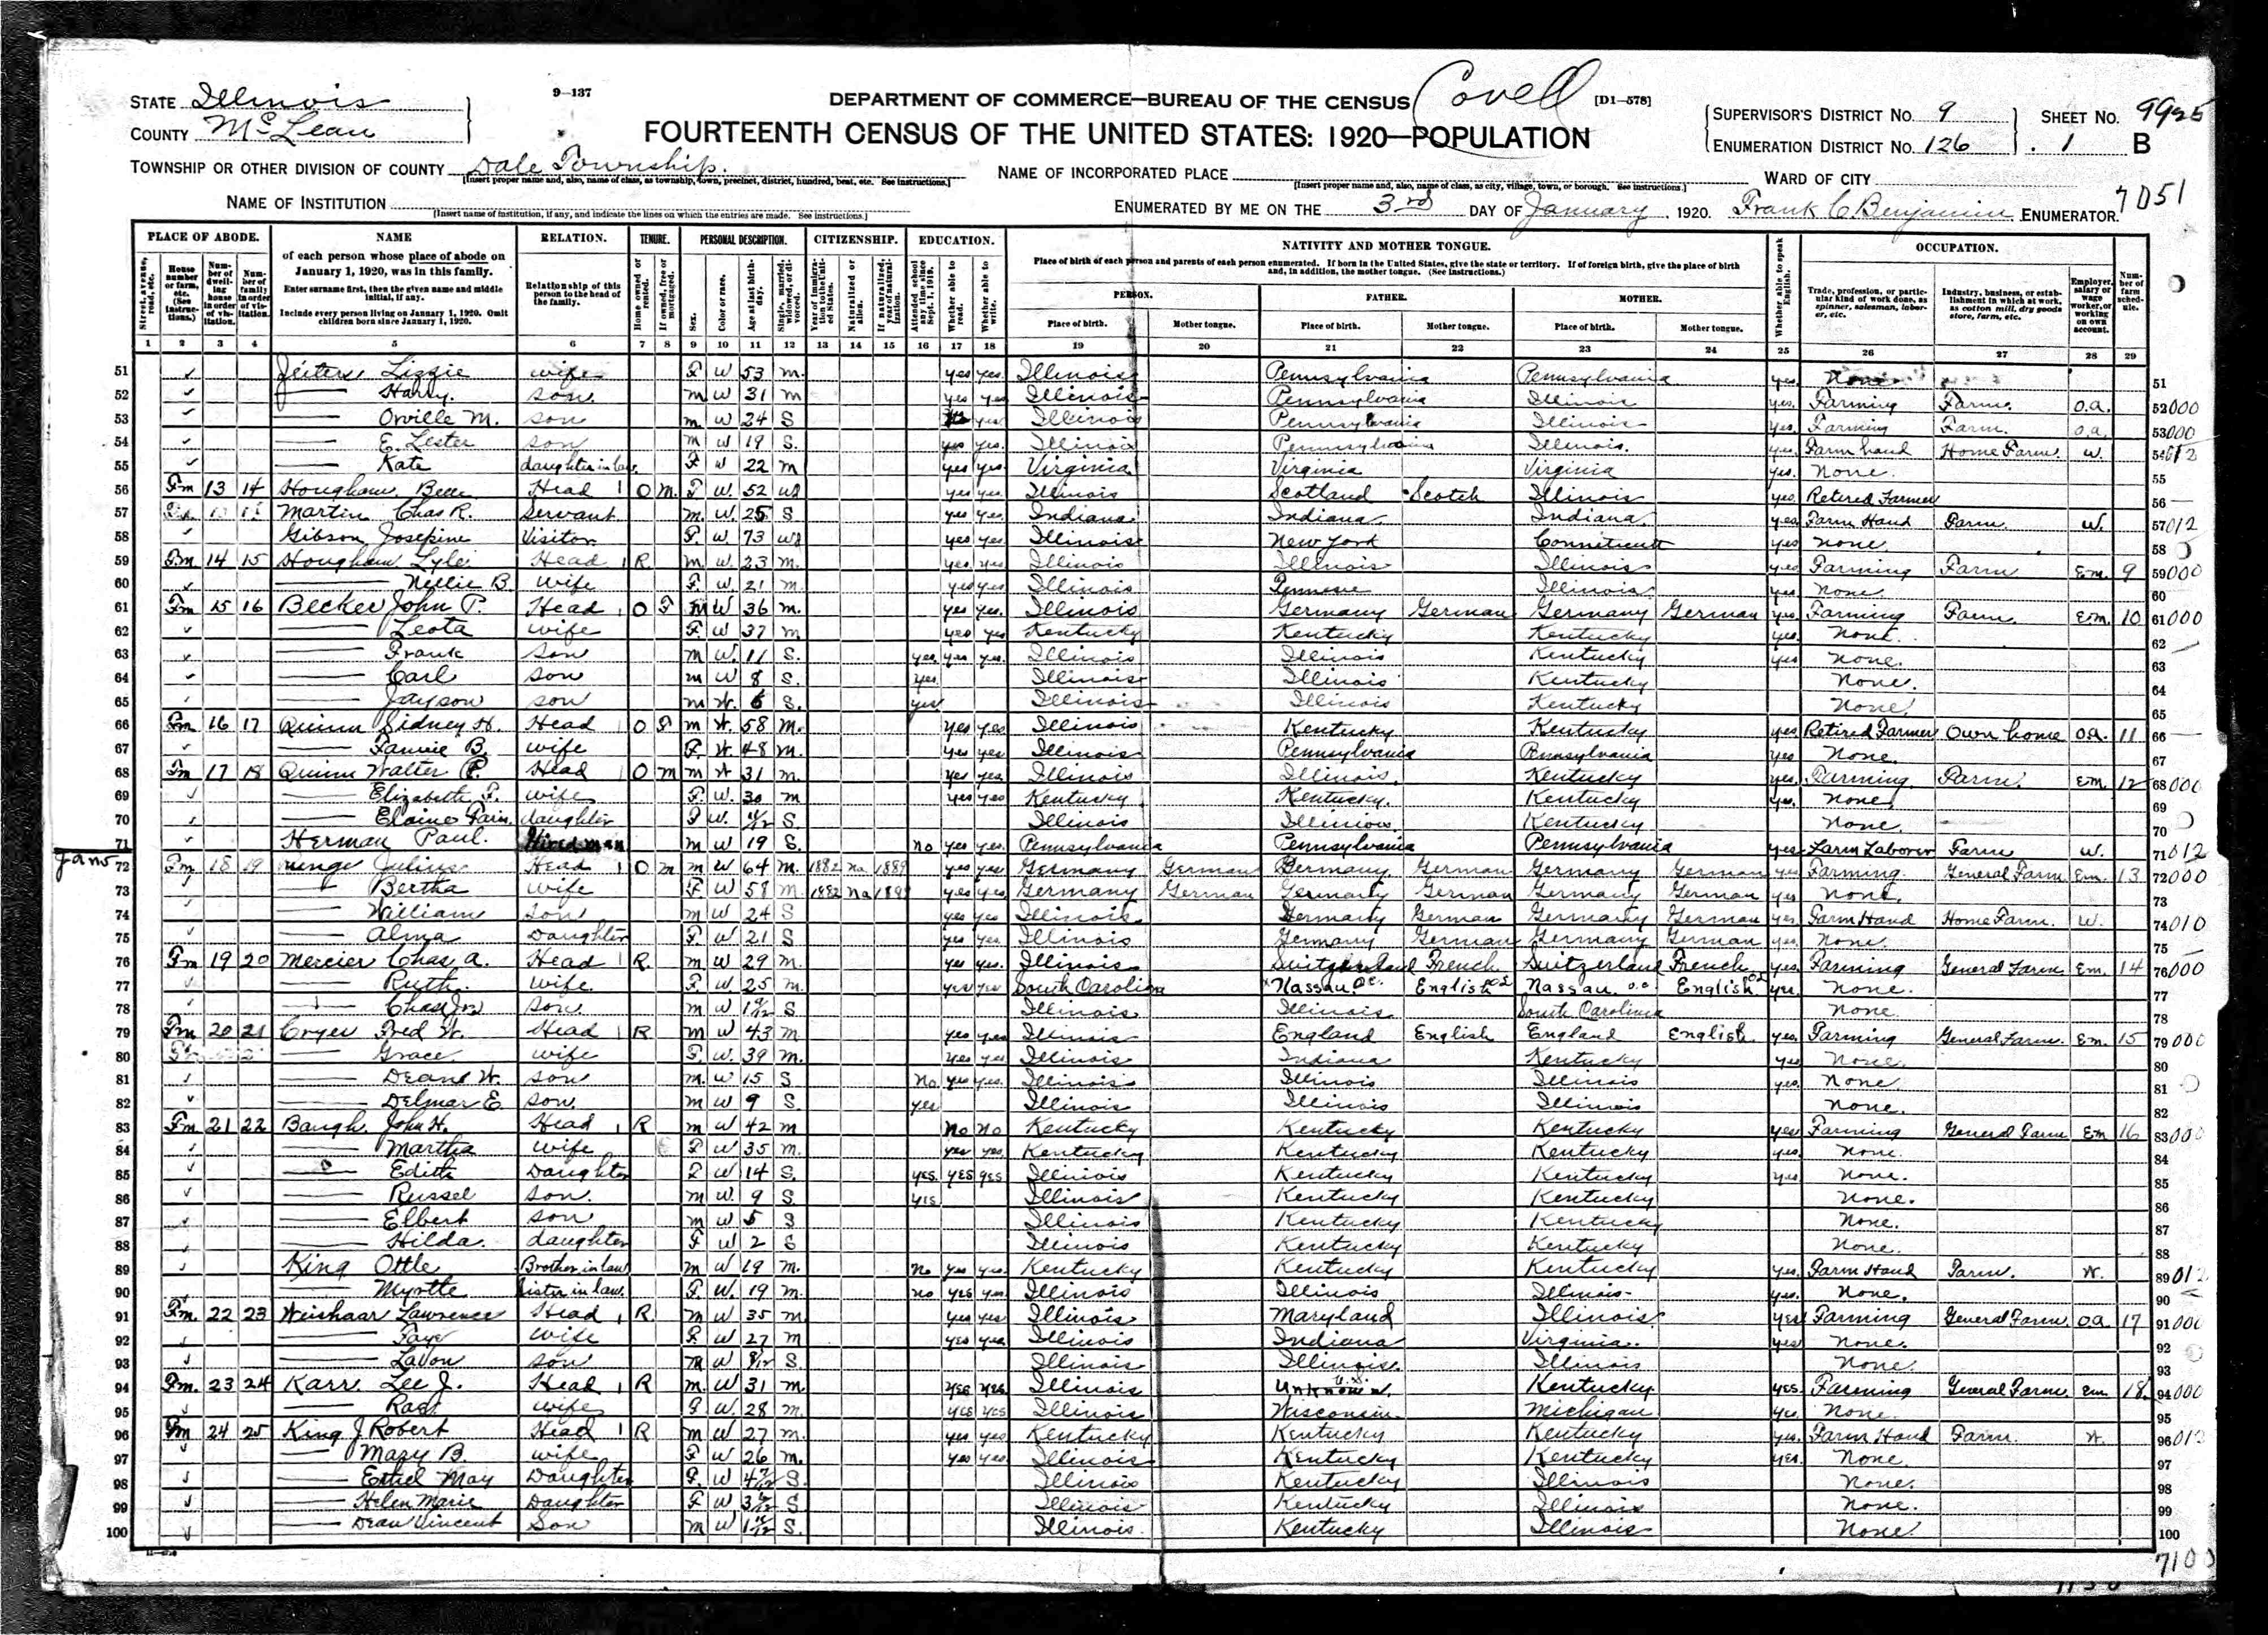 9—137
DEPARTMENT OF COMMERCE—BUREAU OF THE CENSUS Covell [D1—578]
STATE Illinois
COUNTY McLean
FOURTEENTH CENSUS OF THE UNITED STATES: 1920—POPULATION
SUPERVISOR'S DISTRICT NO. 9
ENUMERATION DISTRICT NO. 126
SHEET NO. 9925
1 B
TOWNSHIP OR OTHER DIVISION OF COUNTY Dale Township.
[Insert proper name and, also, name of class, as township, town, precinct, district, hundred, beat, etc. See instructions.]
NAME OF INCORPORATED PLACE
[Insert proper name and, also, name of class, as city, village, town, or borough. See instructions.]
WARD OF CITY
7051
NAME OF INSTITUTION
[Insert name of institution, if any, and indicate the lines on which the entries are made. See instructions.]
ENUMERATED BY ME ON THE 3rd DAY OF January, 1920. Frank C. Benjamin ENUMERATOR.
PLACE OF ABODE. NAME RELATION. TENURE. PERSONAL DESCRIPTION. CITIZENSHIP. EDUCATION. NATIVITY AND MOTHER TONGUE. OCCUPATION.
Street, avenue, road, etc.
House number or farm, etc. (See instructions.)
Number of dwelling house in order of visitation.
Number of family in order of visitation.
of each person whose place of abode on January 1, 1920, was in this family.
Enter surname first, then the given name and middle initial, if any.
Include every person living on January 1, 1920. Omit children born since January 1, 1920.
Relationship of this person to the head of the family.
Home owned or rented.
If owned, free or mortgaged.
Sex.
Color or race.
Age at last birthday.
Single, married, widowed, or divorced.
Year of immigration to the United States.
Naturalized or alien.
If naturalized, year of naturalization.
Attended school any time since Sept. 1, 1919.
Whether able to read.
Whether able to write.
Place of birth of each person and parents of each person enumerated. If born in the United States, give the state or territory. If of foreign birth, give the place of birth and, in addition, the mother tongue. (See instructions.)
PERSON. FATHER. MOTHER.
Place of birth. Mother tongue. Place of birth. Mother tongue. Place of birth. Mother tongue.
Whether able to speak English.
Trade, profession, or particular kind of work done, as spinner, salesman, laborer, etc.
Industry, business, or establishment in which at work, as cotton mill, dry goods store, farm, etc.
Employer, salary or wage worker, or working on own account.
Number of farm schedule.
1 2 3 4 5 6 7 8 9 10 11 12 13 14 15 16 17 18 19 20 21 22 23 24 25 26 27 28 29
51 Lizzie wife F W 53 m. yes yes. Illinois Pennsylvania Pennsylvania yes. None 51
52 Harry. son. m W 31 m yes yes Illinois Pennsylvania Illinois yes. Farming Farm. O.A. 52 000
53 Orville M. son m. W 24 S yes Illinois Pennsylvania Illinois yes. Farming Farm. O.A. 53 000
54 E. Lester son m W 19 S. yes yes. Illinois Pennsylvania Illinois. yes. Farm hand Home Farm. W. 54 012
55 Kate daughter in law. F W 22 m yes yes Virginia Virginia Virginia yes. None. 55
56 Fm 13 14 Hougham, Belle Head 1 O m. F W. 52 wd yes yes Illinois Scotland Scotch Illinois yes. Retired Farmer 56
57 Martin Chas R. Servant m. W. 25 S yes yes Indiana Indiana. Indiana yes Farm Hand Farm. W. 57 012
58 Gibson, Josepine Visitor F. W 73 wd yes yes. Illinois New York Conneticutt yes none. 58
59 Fm 14 15 Hougham Lyle Head 1 R m. W. 23 m. yes yes Illinois Illinois Illinois yes Farming Farm Em. 9 59 000
60 Nellie B. wife F. W. 21 m. yes yes Illinois Illinois yes None 60
61 Fm 15 16 Becker John P. Head 1 O F m W 36 m. yes yes. Illinois Germany German Germany German yes. Farming Farm. Em. 10 61 000
62 Leota wife F. W 37 m yes yes Kentucky Kentucky Kentucky yes. None. 62
63 Frank son m W. 11 S. yes. yes yes. Illinois Illinois Kentucky yes None. 63
64 Carl son m W 8 S. yes. Illinois Illinois Kentucky None. 64
65 Jayson son m W. 6 S. yes Illinois Illinois Kentucky None. 65
66 Fm 16 17 Quinn Sidney H. Head 1 O F m W. 58 m. yes yes Illinois Kentucky Kentucky yes Retired Farmer Own home O.A. 11 66
67 Fannie B. wife F. W. 48 m. yes yes Illinois Pennsylvania Pennsylvania yes None. 67
68 Fm 17 18 Quinn Walter P. Head 1 O m m W 31 m. yes yes. Illinois Illinois. Kentucky yes. Farming. Farm. Em. 12 68 000
69 Elizabeth F. wife F. W. 30 m yes yes Kentucky Kentucky. Kentucky yes. None. 69
70 Elaine daughter F W. S. Illinois Illinios Kentucky None. 70
71 Herman Paul. Hired man m W 19 S. no yes yes. Pennsylvania Pennsylvania Pennsylvania yes Farm Laborer Farm W. 71 012
72 Fm 18 19 Julius Head 1 O m m W 64 m. 1882 na 1889 yes yes Germany German Germany German Germany German yes Farming. General Farm Em. 13 72 000
73 Bertha wife F W 58 m 1882 na yes yes Germany German Germany German Germany German yes None. 73
74 William son m W 24 S yes yes Illinois Germany German Germany German yes. Farm Hand Home Farm. W. 74 010
75 Alma Daughter F. W 21 S yes yes. Illinois Germany German Germany German yes. None. 75
76 Fm 19 20 Mercier Chas A. Head 1 R. m W 29 m. yes yes. Illinois Switzerland French Switzerland French yes. Farming General Farm Em. 14 76 000
77 Ruth. wife F. W 25 m. yes yes South Carolina Nassau English Nassau English yes. None. 77
78 Chas Jr. son m W S Illinois Illinois South Carolina None. 78
79 Fm 20 21 Cryer Fred W. Head 1 R m W 43 m. yes yes Illinois England English England English yes. Farming General Farm. Em. 15 79 000
80 Grace wife F. W. 39 m. yes yes Illinois Indiana Kentucky yes None. 80
81 Deane W. son m. W 15 S no yes yes. Illinois Illinois Illinois yes. None 81
82 Delmar E. son. m W 9 S. yes Illinois Illinois Illinois None. 82
83 Fm. 21 22 Baugh, John H. Head 1 R m W 42 m no no Kentucky Kentucky Kentucky yes Farming General Farm Em 16 83 000
84 Martha wife F W 35 m. yes yes. Kentucky Kentucky Kentucky yes. None. 84
85 Edith Daughter F W 14 S. yes. yes yes Illinois Kentucky Kentucky yes None. 85
86 Russel son. m W. 9 S yes Illinois Kentucky Kentucky None. 86
87 Elbert son m W 5 S Illinois Kentucky Kentucky None. 87
88 Hilda. daughter F W 2 S Illinois Kentucky Kentucky None. 88
89 King Ottle Brother in law m W 19 m. no yes yes. Kentucky Kentucky Kentucky yes. Farm Hand Farm. W. 89 012
90 Myrtte Sister in law. F. W. 19 m. no yes yes. Illinois Illinois Illinois yes. None. 90
91 Fm. 22 23 Weishaar Lawrence Head 1 R. m W 35 m yes yes Illinois Maryland Illinois yes Farming General Farm. OA 17 91 000
92 Faye wife F. W 27 m yes yes Illinois Indiana Virginia. yes None. 92
93 LaVon son m W S. Illinois Illinois. Illinois None. 93
94 Fm. 23 24 Karr. Lee J. Head 1 R m. W 31 m. yes yes Illinois Unknown. U.S. Kentucky yes. Farming General Farm Em. 18 94 000
95 wife F W. 28 m. yes yes Illinois Wisconsin Michigan yes None 95
96 Fm 24 25 King J Robert Head 1 R m W 27 m. yes yes Kentucky Kentucky Kentucky yes. Farm Hand Farm. W. 96 012
97 Mary B. wife F W 26 m. yes yes Illinois Kentucky Kentucky yes. None. 97
98 Ethel May Daughter F. W S. Illinois Kentucky Illinois None. 98
99 Helen Marie Daughter F W S Illinois Kentucky Illinois None. 99
100 Dean Vincent Son m W S. Illinois Kentucky Illinois None 100